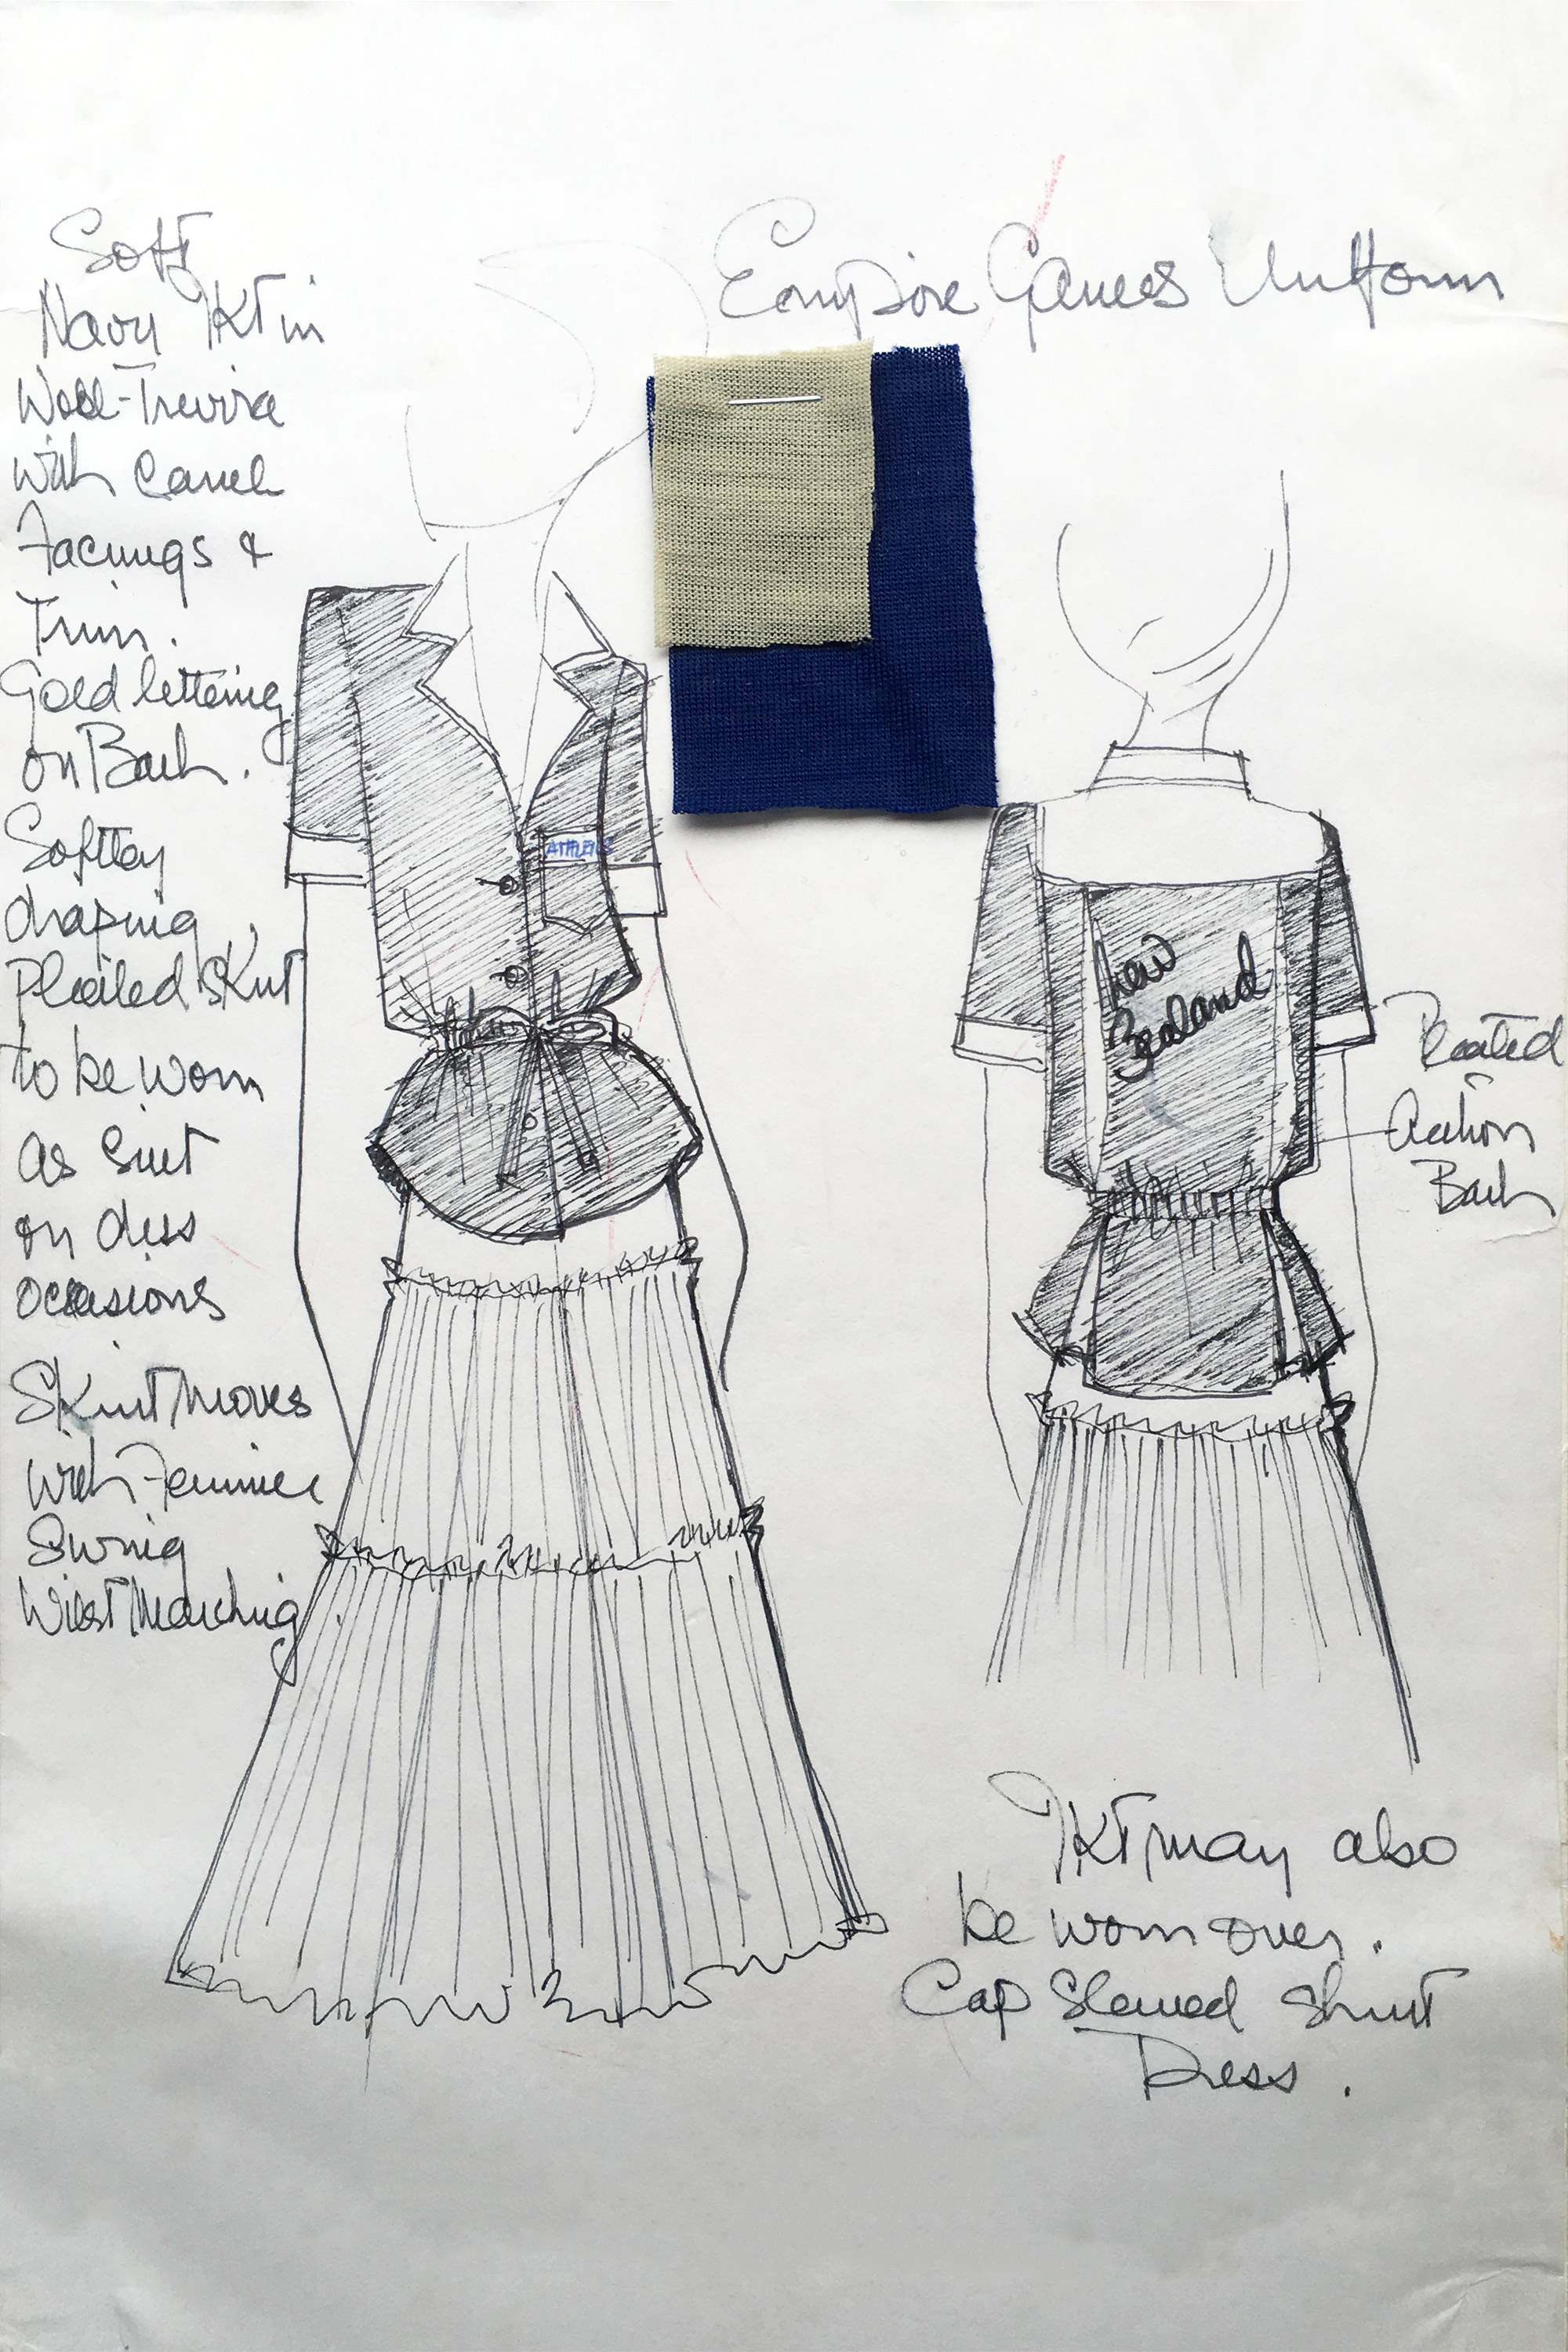 Empire Games Uniform
Soft
Navy JKT in
Wool-Trevira
with Camel
Facings &
Trim.
Gold lettering
on Back.
Softley
draping
Pleated Skirt
to be worn
as Suit
on dress
occasions
Skirt moves
with Feminine
Swing
Whilst Marching.
ATHLETICS
New
Zealand
Pleated
Action
Back
JKT may also
be worn over.
Cap Sleeved Shirt
Dress.